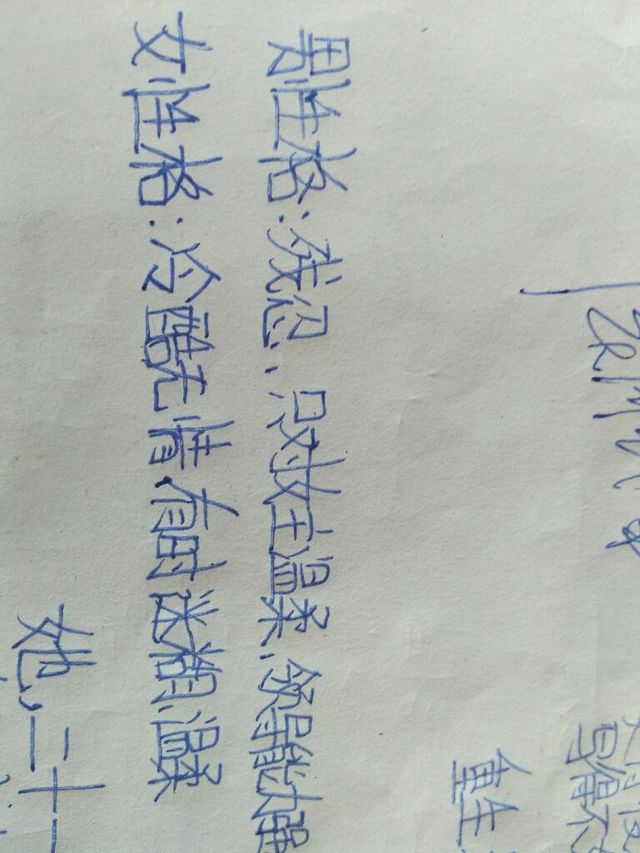 写得不
男性格:残忍.只对女主温柔.领导能力强
女性格:冷酷无情.有时迷糊.温柔
她,二十